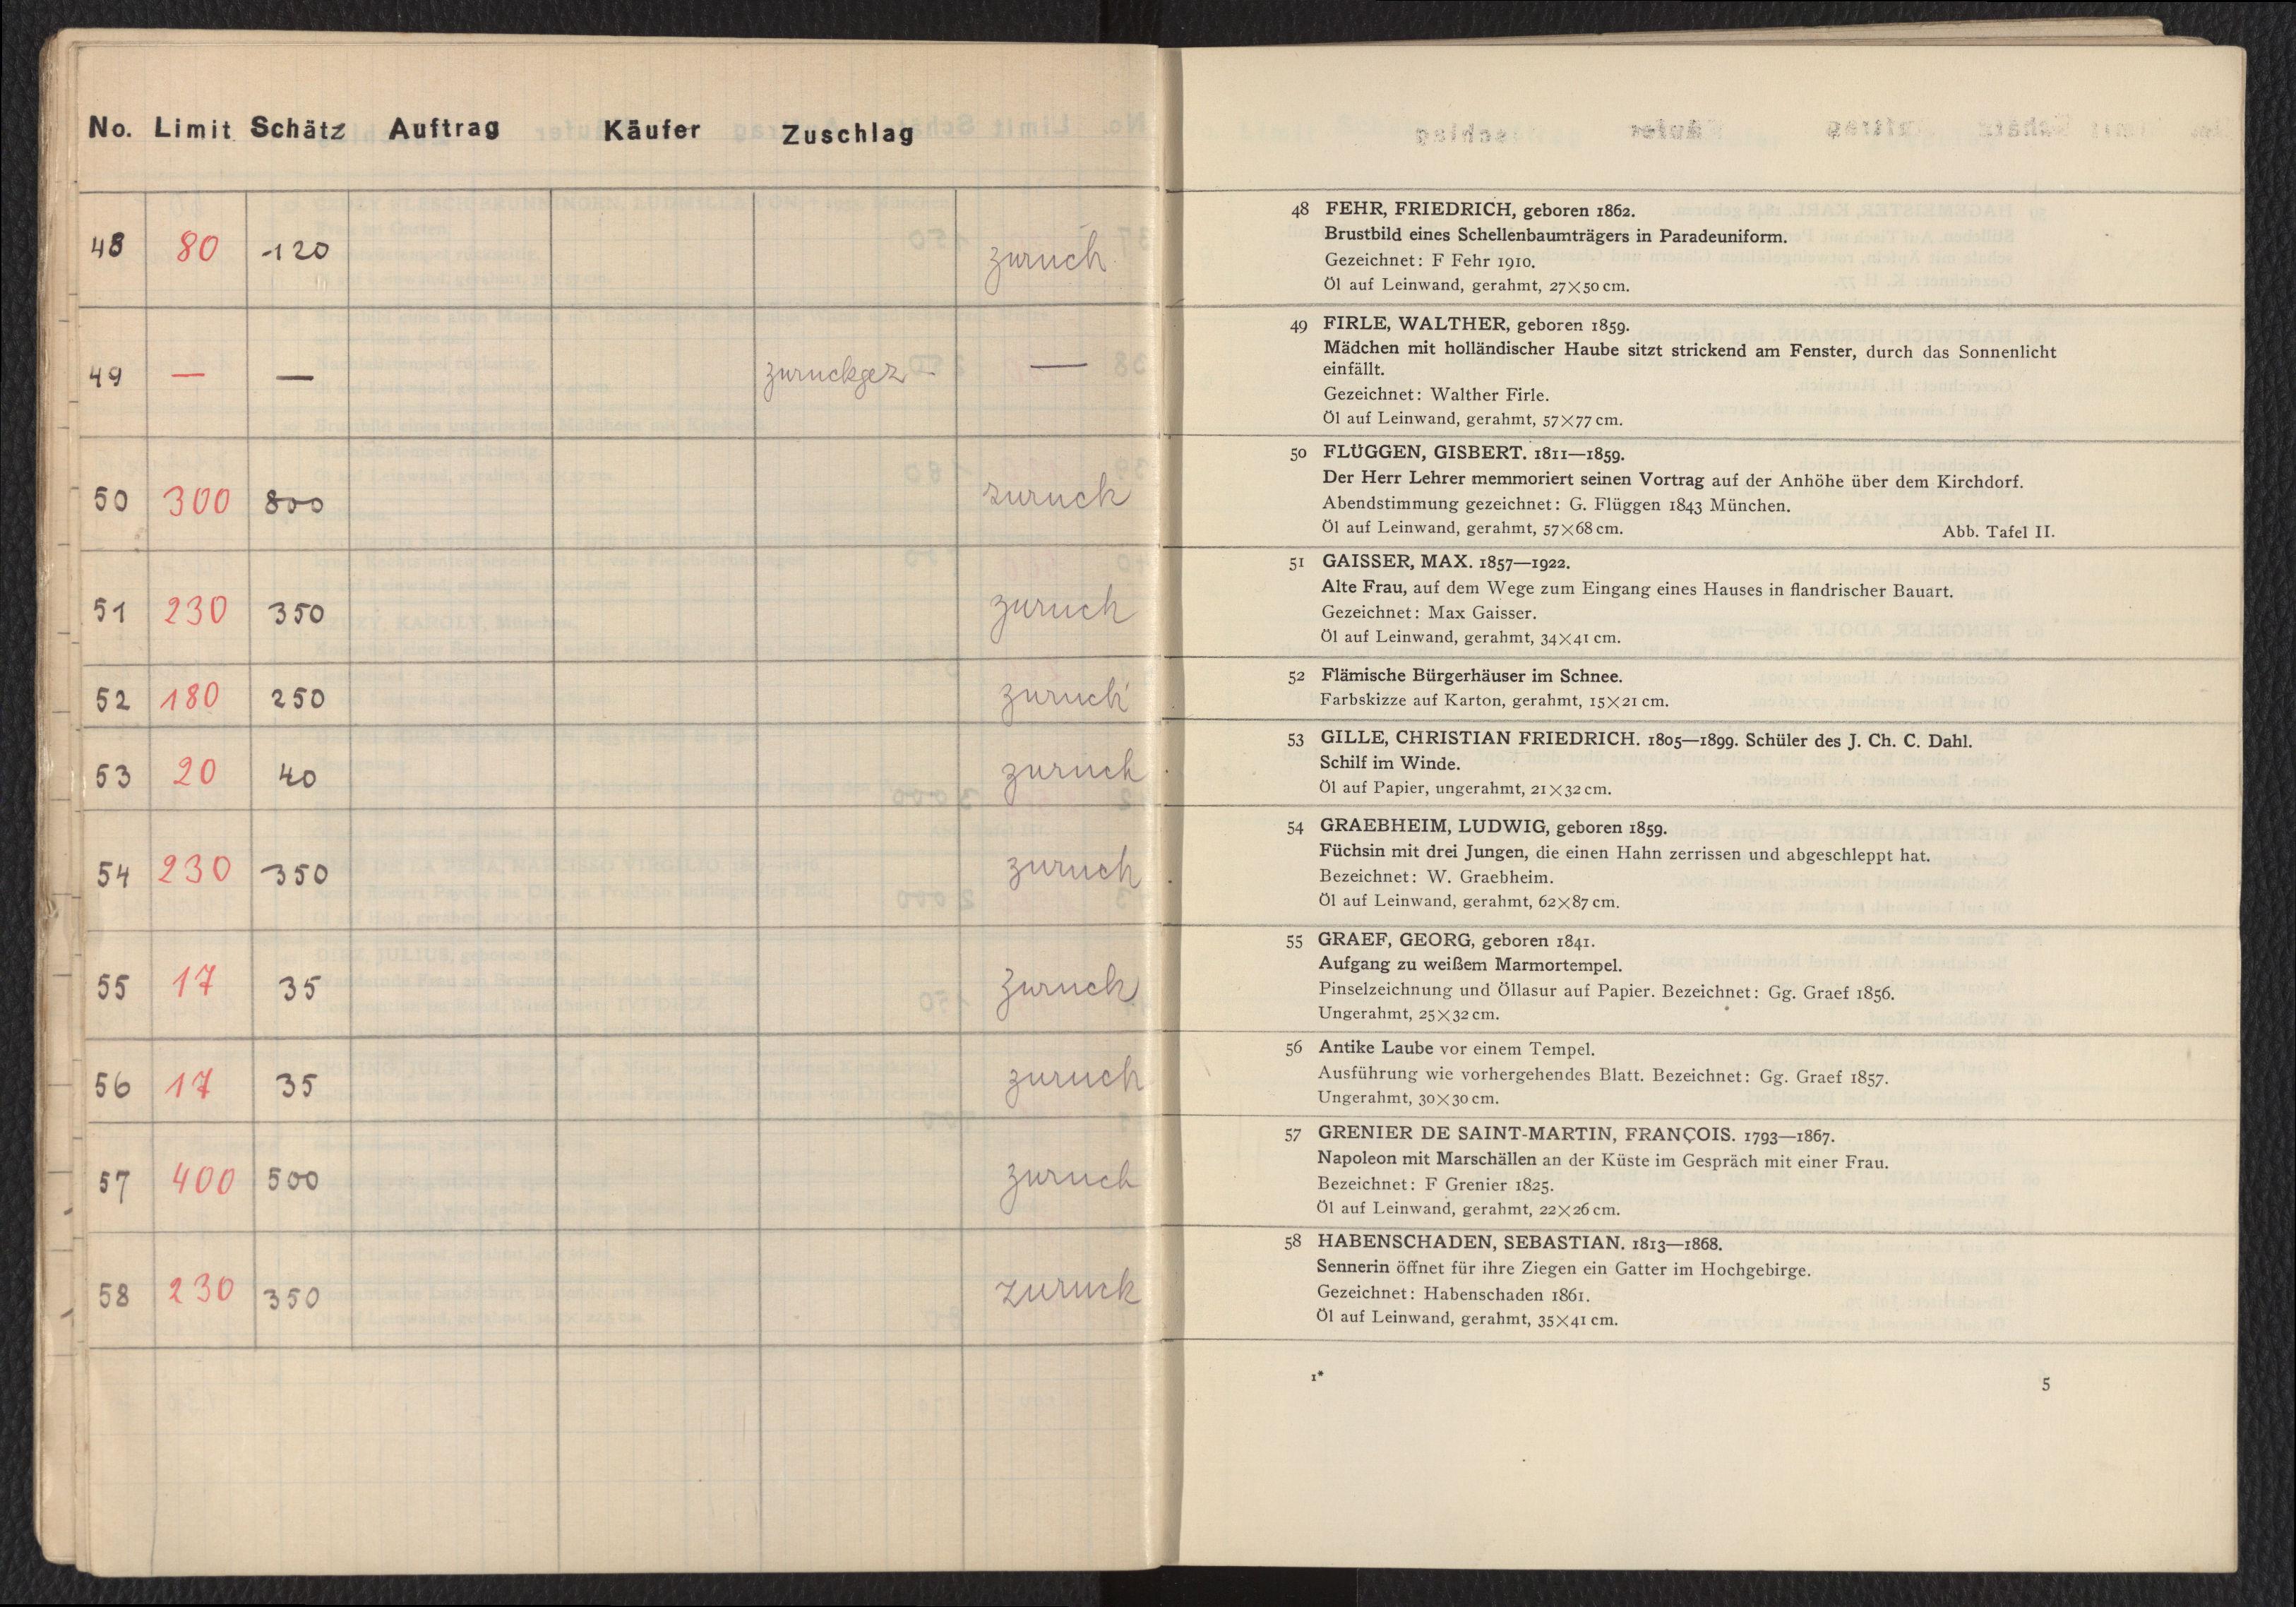 No. Limit Schätz Auftrag Käufer Zuschlag
48 80 120 zuruck
49 — — zuruckgez —
50 300 800 zuruck
51 230 350 zuruck
52 180 250 zuruck
53 20 40 zuruck
54 230 350 zuruck
55 17 35 zuruck
56 17 35 zuruck
57 400 500 zuruck
58 230 350 zuruck
48 FEHR, FRIEDRICH, geboren 1862.
Brustbild eines Schellenbaumträgers in Paradeuniform.
Gezeichnet: F Fehr 1910.
Öl auf Leinwand, gerahmt, 27×50 cm.
49 FIRLE, WALTHER, geboren 1859.
Mädchen mit holländischer Haube sitzt strickend am Fenster, durch das Sonnenlicht
einfällt.
Gezeichnet: Walther Firle.
Öl auf Leinwand, gerahmt, 57×77 cm.
50 FLÜGGEN, GISBERT. 1811—1859.
Der Herr Lehrer memmoriert seinen Vortrag auf der Anhöhe über dem Kirchdorf.
Abendstimmung gezeichnet: G. Flüggen 1843 München.
Öl auf Leinwand, gerahmt, 57×68 cm. Abb. Tafel II.
51 GAISSER, MAX. 1857—1922.
Alte Frau, auf dem Wege zum Eingang eines Hauses in flandrischer Bauart.
Gezeichnet: Max Gaisser.
Öl auf Leinwand, gerahmt, 34×41 cm.
52 Flämische Bürgerhäuser im Schnee.
Farbskizze auf Karton, gerahmt, 15×21 cm.
53 GILLE, CHRISTIAN FRIEDRICH. 1805—1899. Schüler des J. Ch. C. Dahl.
Schilf im Winde.
Öl auf Papier, ungerahmt, 21×32 cm.
54 GRAEBHEIM, LUDWIG, geboren 1859.
Füchsin mit drei Jungen, die einen Hahn zerrissen und abgeschleppt hat.
Bezeichnet: W. Graebheim.
Öl auf Leinwand, gerahmt, 62×87 cm.
55 GRAEF, GEORG, geboren 1841.
Aufgang zu weißem Marmortempel.
Pinselzeichnung und Öllasur auf Papier. Bezeichnet: Gg. Graef 1856.
Ungerahmt, 25×32 cm.
56 Antike Laube vor einem Tempel.
Ausführung wie vorhergehendes Blatt. Bezeichnet: Gg. Graef 1857.
Ungerahmt, 30×30 cm.
57 GRENIER DE SAINT-MARTIN, FRANÇOIS. 1793—1867.
Napoleon mit Marschällen an der Küste im Gespräch mit einer Frau.
Bezeichnet: F Grenier 1825.
Öl auf Leinwand, gerahmt, 22×26 cm.
58 HABENSCHADEN, SEBASTIAN. 1813—1868.
Sennerin öffnet für ihre Ziegen ein Gatter im Hochgebirge.
Gezeichnet: Habenschaden 1861.
Öl auf Leinwand, gerahmt, 35×41 cm.
1* 5